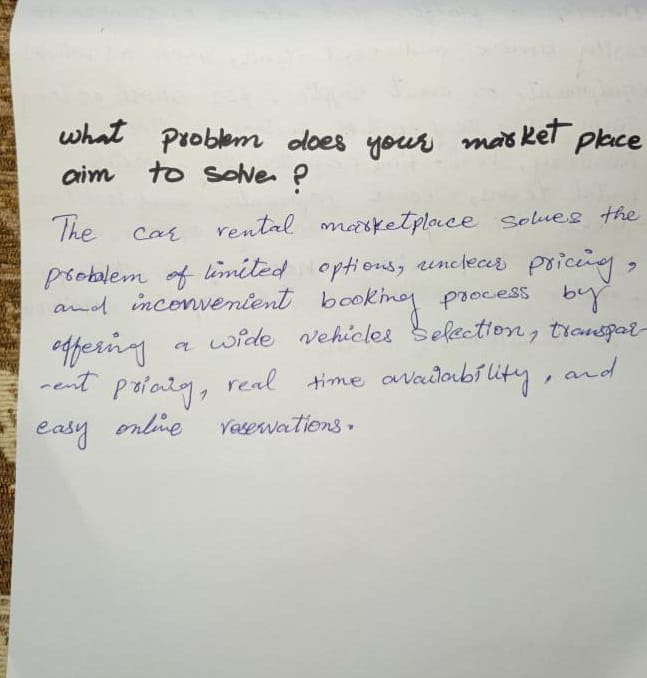 what problem does your market place
aim to solve ?
The car rental marketplace solves the
problem of limited options, unclear pricing,
and inconvenient booking process by
offering a wide vehicles selection, transpar
-ent pricing, real time availability, and
easy online reservations.